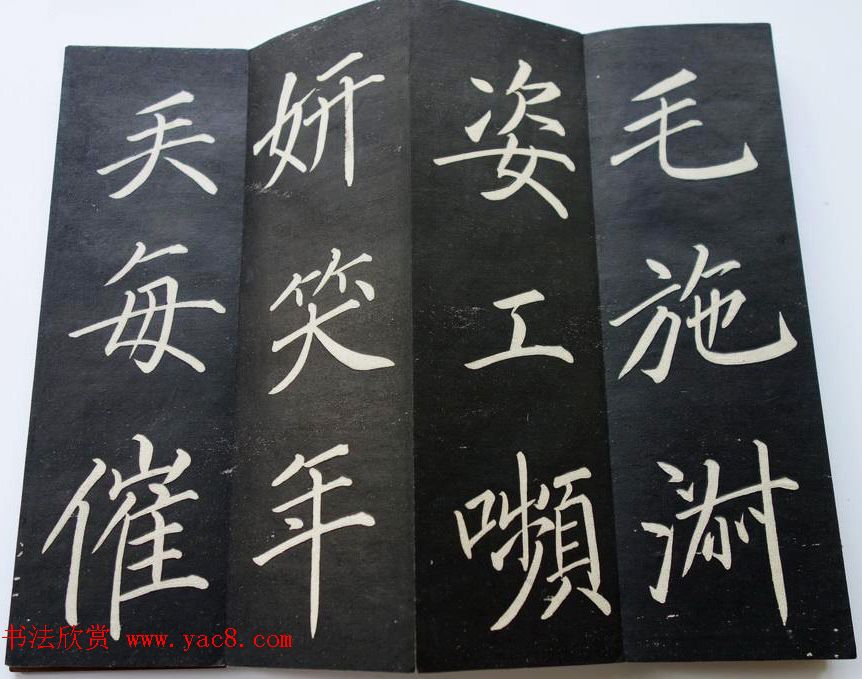 毛施淑
姿工嚬
妍笑年
矢每催
书法欣赏 www.yac8.com